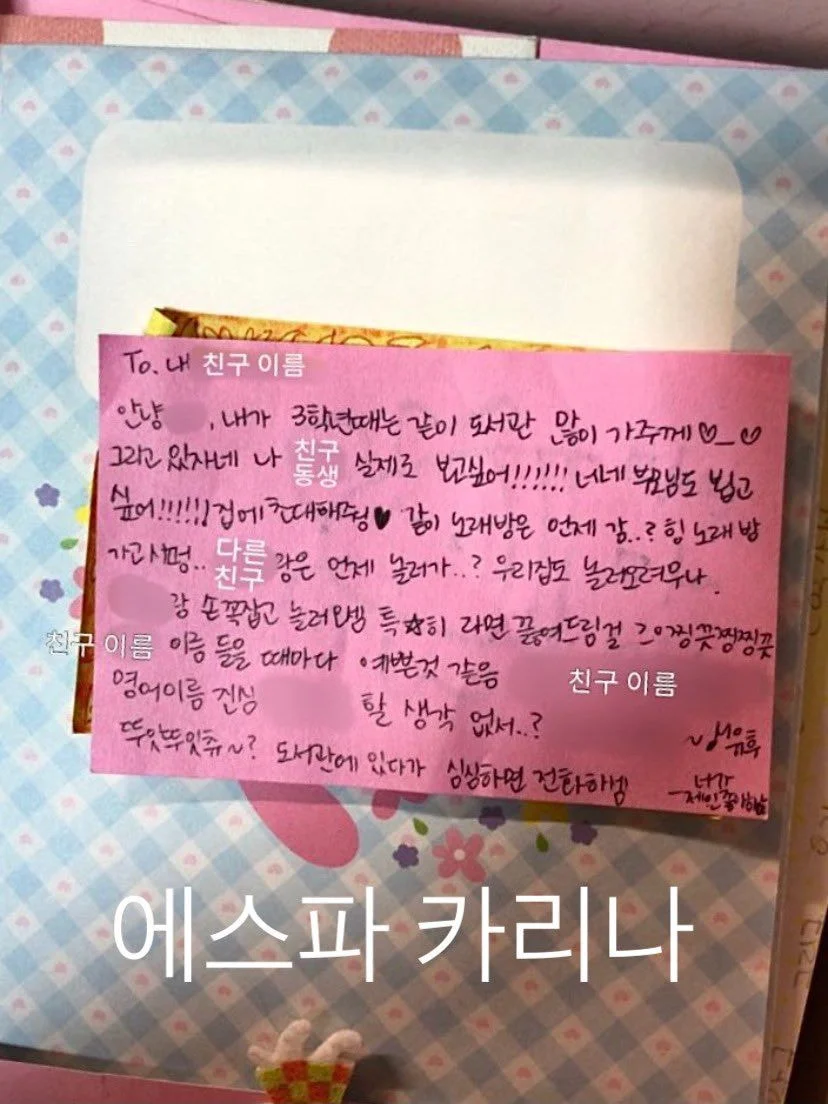 To. 내 친구 이름
안냥 , 내가 3학년때는 같이 도서관 많이 가주께♡_♡
그리고 있자네 나 친구 동생 실제로 보고싶어!!!!!! 너네 부모님도 뵙고
싶어!!!!!! 집에 초대해줭♥ 같이 노래방은 언제 감..? 힝 노래방
가고시펑.. 다른 친구 랑은 언제 놀러가..? 우리집도 놀러오려무나.
랑 손꼭잡고 놀러오셈 특☆히 라면 끓여드림걸
친구 이름 이름 들을 때마다 예쁜것 같음 친구 이름
영어이름 진심 할 생각 없서..?
뚜앗뚜잇츄~? 도서관에 있다가 심심하면 전화하셈
~ 유후
너가
제인
에스파 카리나